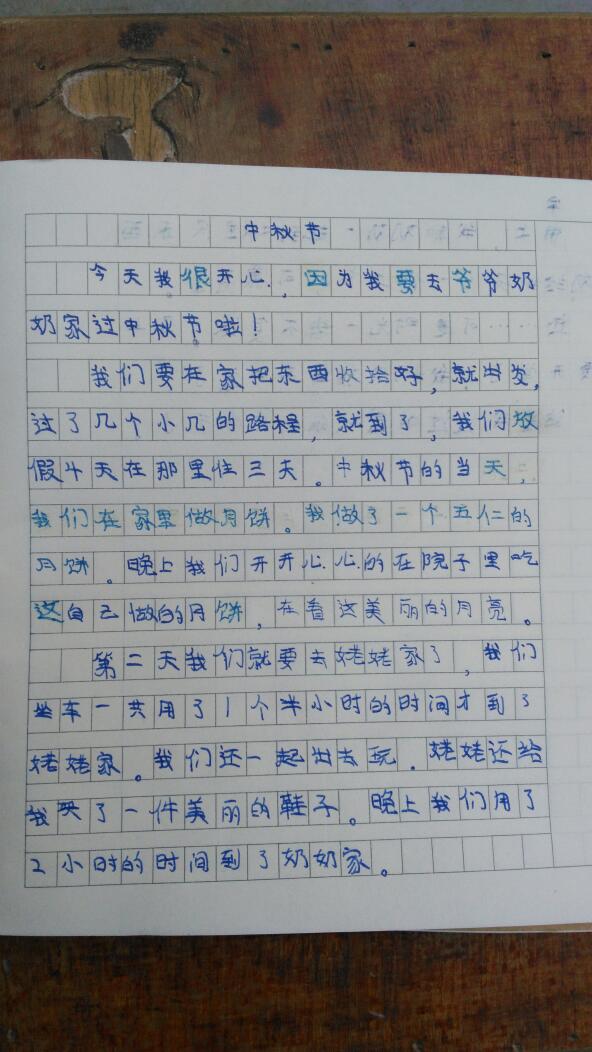 中秋节
今天我很开心，因为我要去爷爷奶
奶家过中秋节啦！
我们要在家把东西收拾好，就出发，
过了几个小几的路程，就到了，我们放
假4天在那里住三天。中秋节的当天，
我们在家里做月饼。我做了一个五仁的
月饼。晚上我们开开心心的在院子里吃
这自己做的月饼，在看这美丽的月亮。
第二天我们就要去姥姥家了，我们
坐车一共用了1个半小时的时间才到了
姥姥家。我们还一起出去玩．姥姥还给
我买了一件美丽的鞋子。晚上我们用了
2小时的时间到了奶奶家。